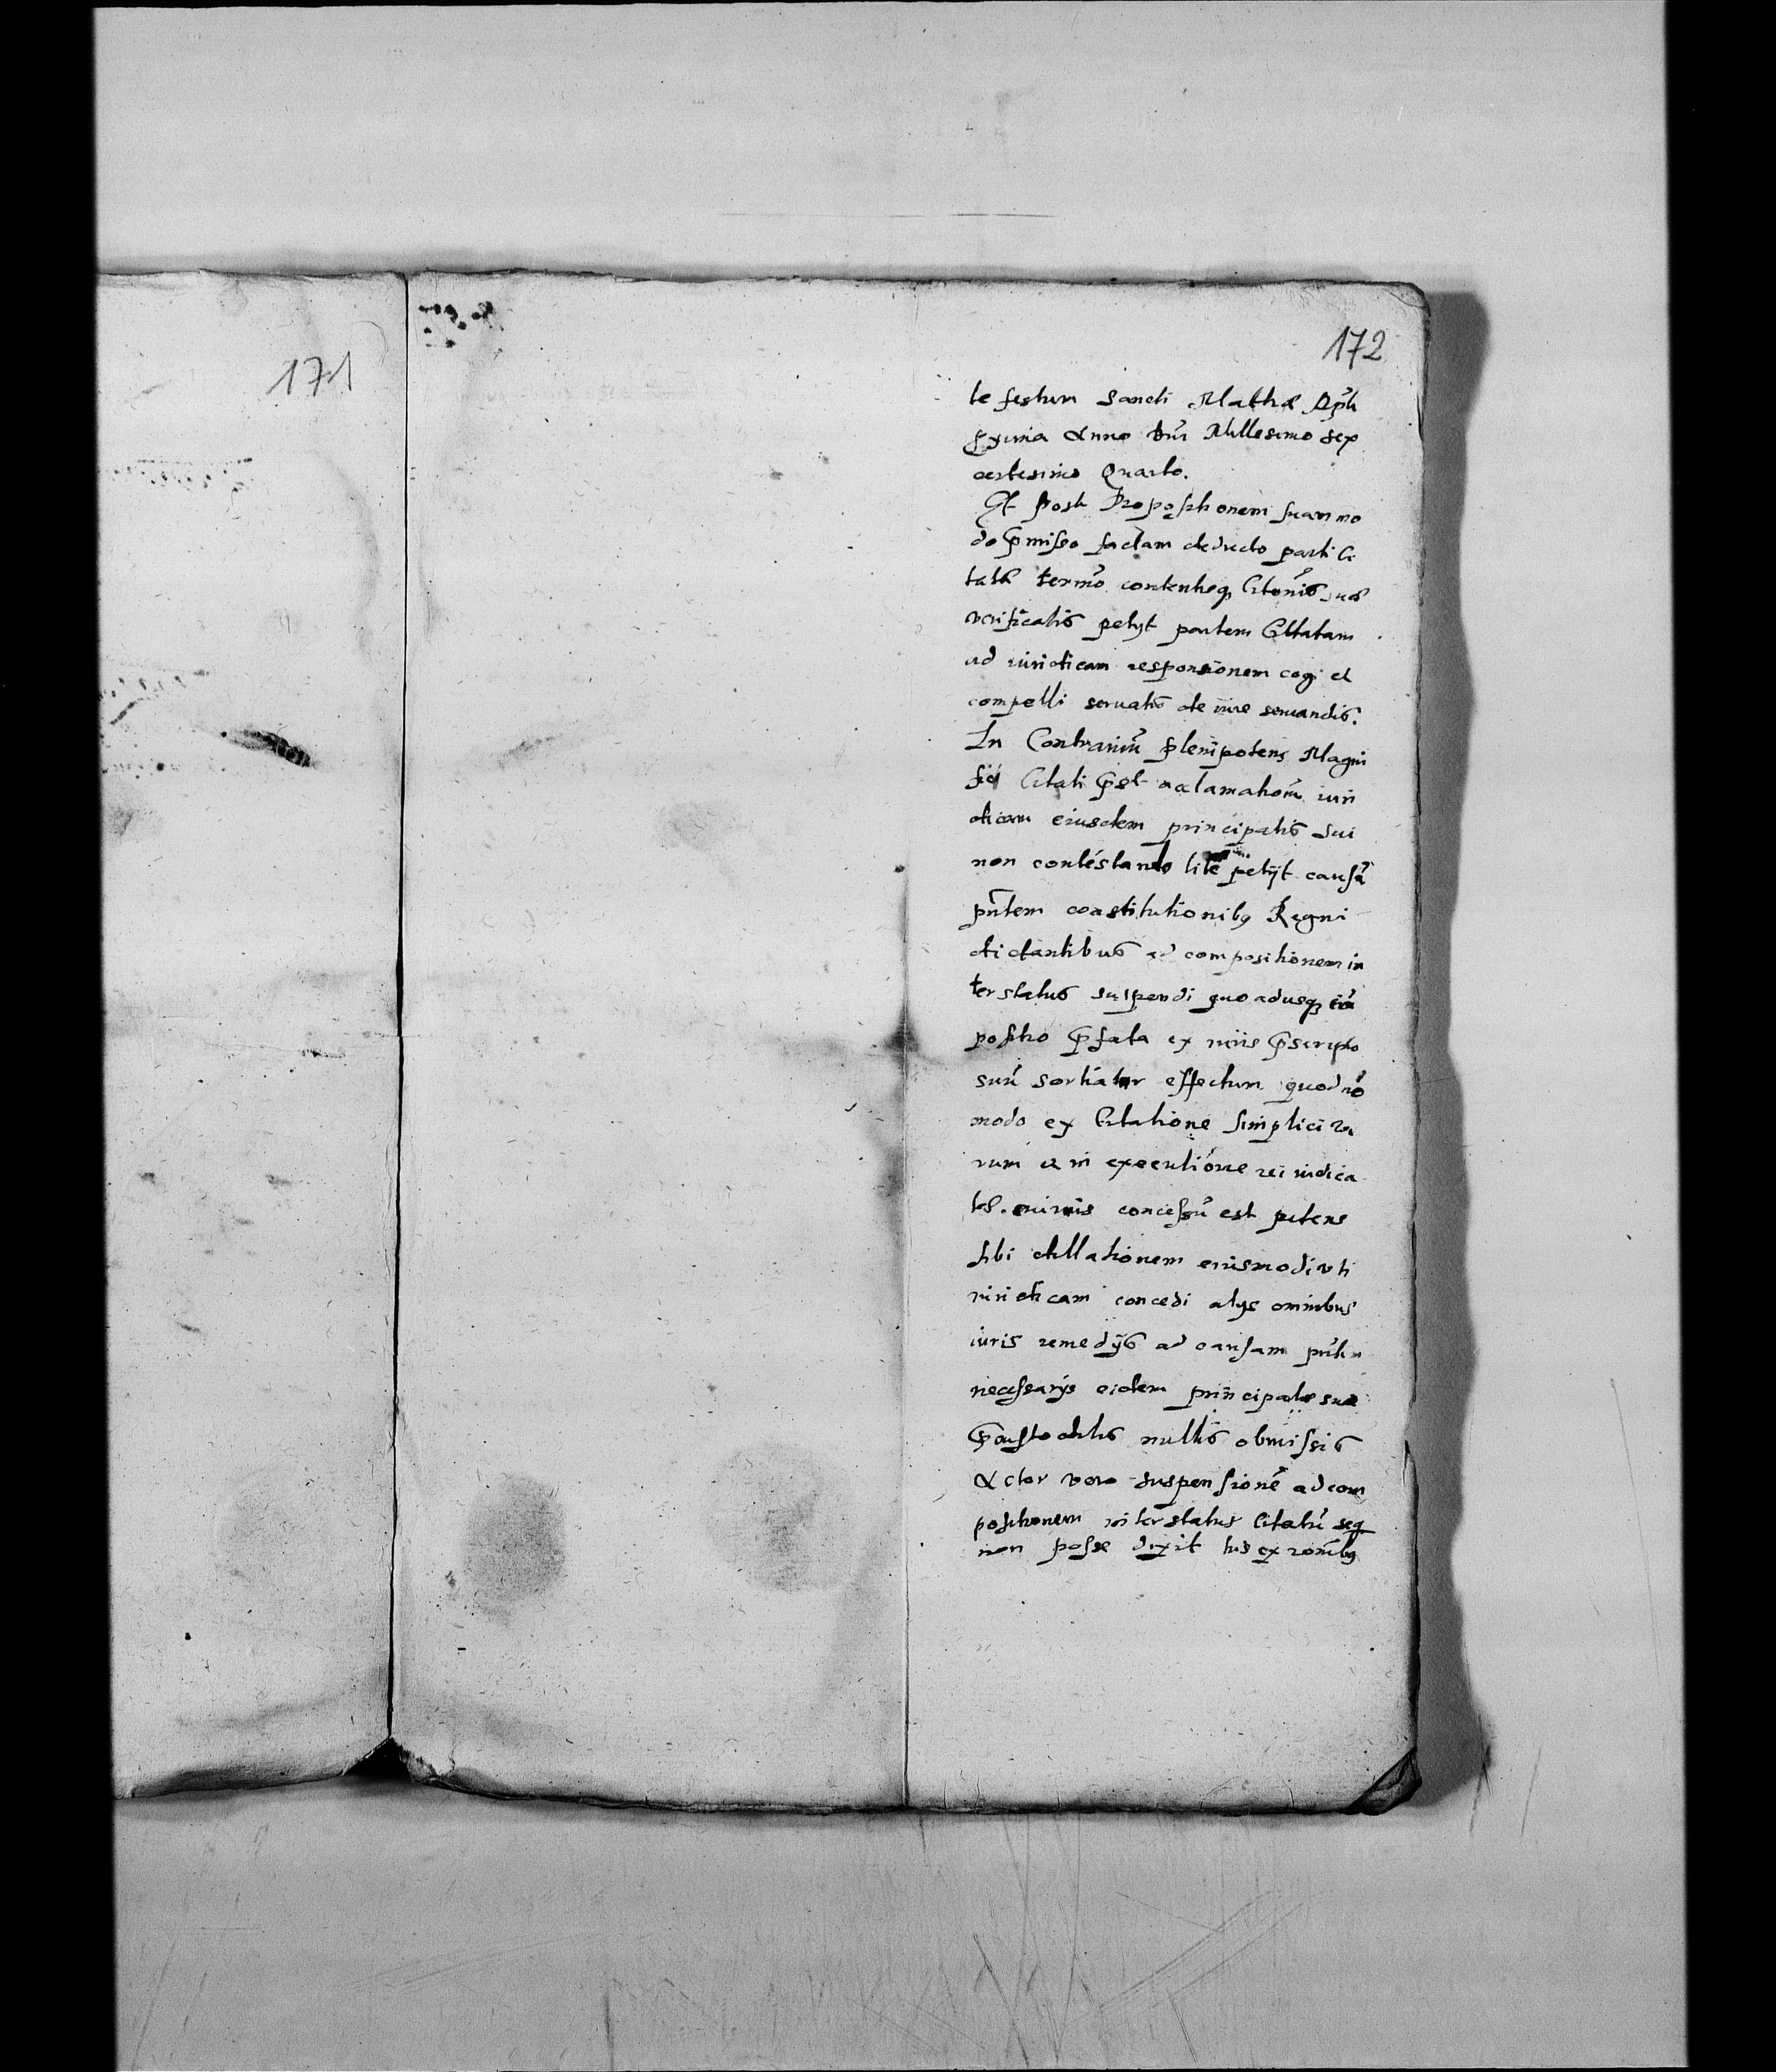 171
172
te festum Sancti Mathæ Apli
pxima Anno Dni Millesimo sex
centesimo Quarto.
Et post Propositionem suam mo
do pmisso factam deducto parti Ci
tatæ termo contentisq Citonis suæ
verificatis petyt partem Citatam
ad iuridicam responsionem cogi et
compelli servatis de iure servandis.
In Contrariũ plenipotens Magni
fici Citati pst acclamationẽ iuri
dicam eiusdem principalis sui
non contestando litẽ petijt causã
pñtem constitutionibq Regni
dictantibus ad compositionem in
ter status suspendi quo adusq cõ
positio pfata ex
suũ sortiatur effectum quod nõ
modo ex Citatione simplici ve
rum et in executione rei iudica
tæ. concessũ est petens
sibi dillationem eiusmodi uti
iuridicam concedi alys omnibus
iuris remedijs ad causam
necessarys eidem principale suo
nullis obmissis
Actor vero suspensionẽ ad com
positionem inter status Citatũ seq
non posse dixit his ex ronibq